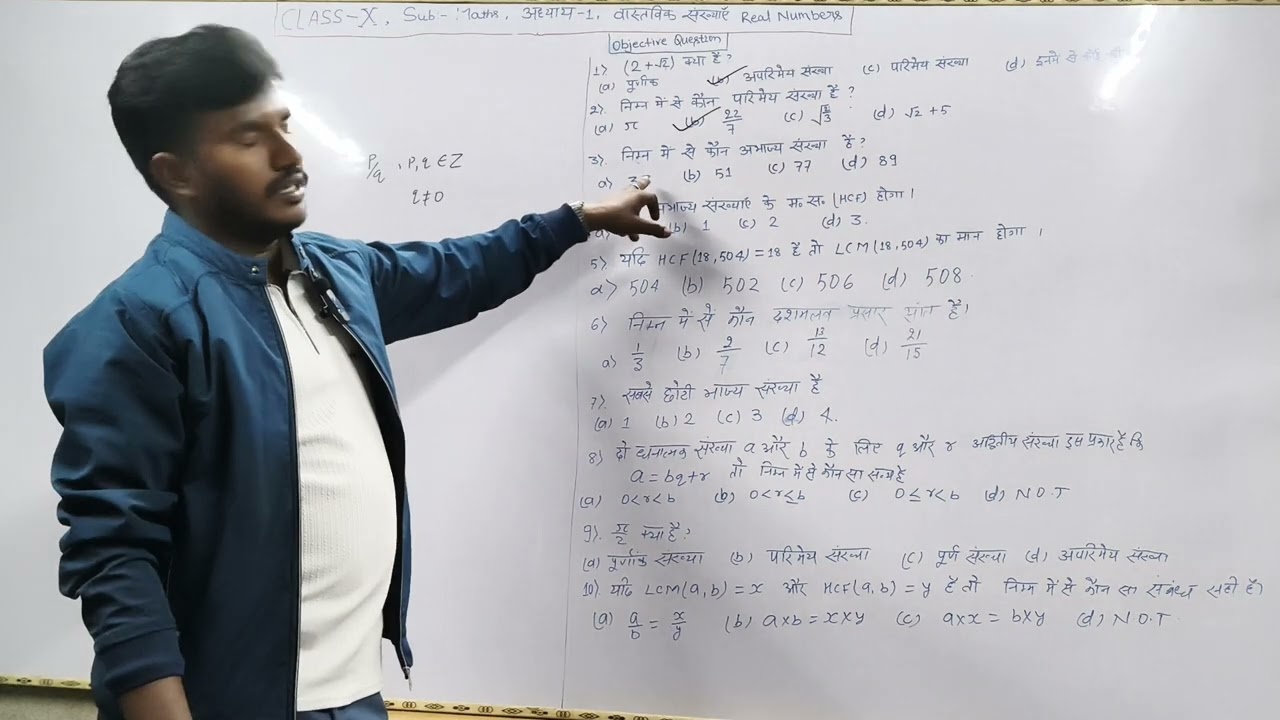 CLASS-X, Sub-Maths, अध्याय-1, वास्तविक संख्याएँ Real Numbers
Objective Question
1). (2+√2) क्या है?
(a) पूर्णांक (b) अपरिमेय संख्या (c) परिमेय संख्या (d) इनमे से
2). निम्न में से कौन परिमेय संख्या है?
(a) π (b) 22/7 (c) (d) √2+5
P/q, P,q ∈ Z
q≠0
3). निम्न में से कौन अभाज्य संख्या है?
a) (b) 51 (c) 77 (d) 89
अभाज्य संख्याएँ के म.स. (HCF) होगा।
(b) 1 (c) 2 (d) 3.
5). यदि HCF(18,504)=18 है तो LCM(18,504) का मान होगा।
a) 504 (b) 502 (c) 506 (d) 508.
6) निम्न में सें कौन दशमलव प्रसार सांत है।
a) 1/3 (b) 2/7 (c) 13/12 (d) 21/15
7). सबसे छोटी भाज्य संख्या है
(a) 1 (b) 2 (c) 3 (d) 4.
8) दो धनात्मक संख्या a और b के लिए q और r अद्वितीय संख्या इस प्रकार है कि
a=bq+r तो निम्न में से कौन सा सत्य है
(a) 0<r<b (b) 0<r≤b (c) 0≤r<b (d) N.O.T
9). π/2 क्या है?
(a) पूर्णांक संख्या (b) परिमेय संख्या (c) पूर्ण संख्या (d) अपरिमेय संख्या
10). यदि LCM(a,b)=x और HCF(a,b)=y है तो निम्न में से कौन सा संबंध सही है।
(a) a/b = x/y (b) a×b=x×y (c) a×x=b×y (d) N.O.T.